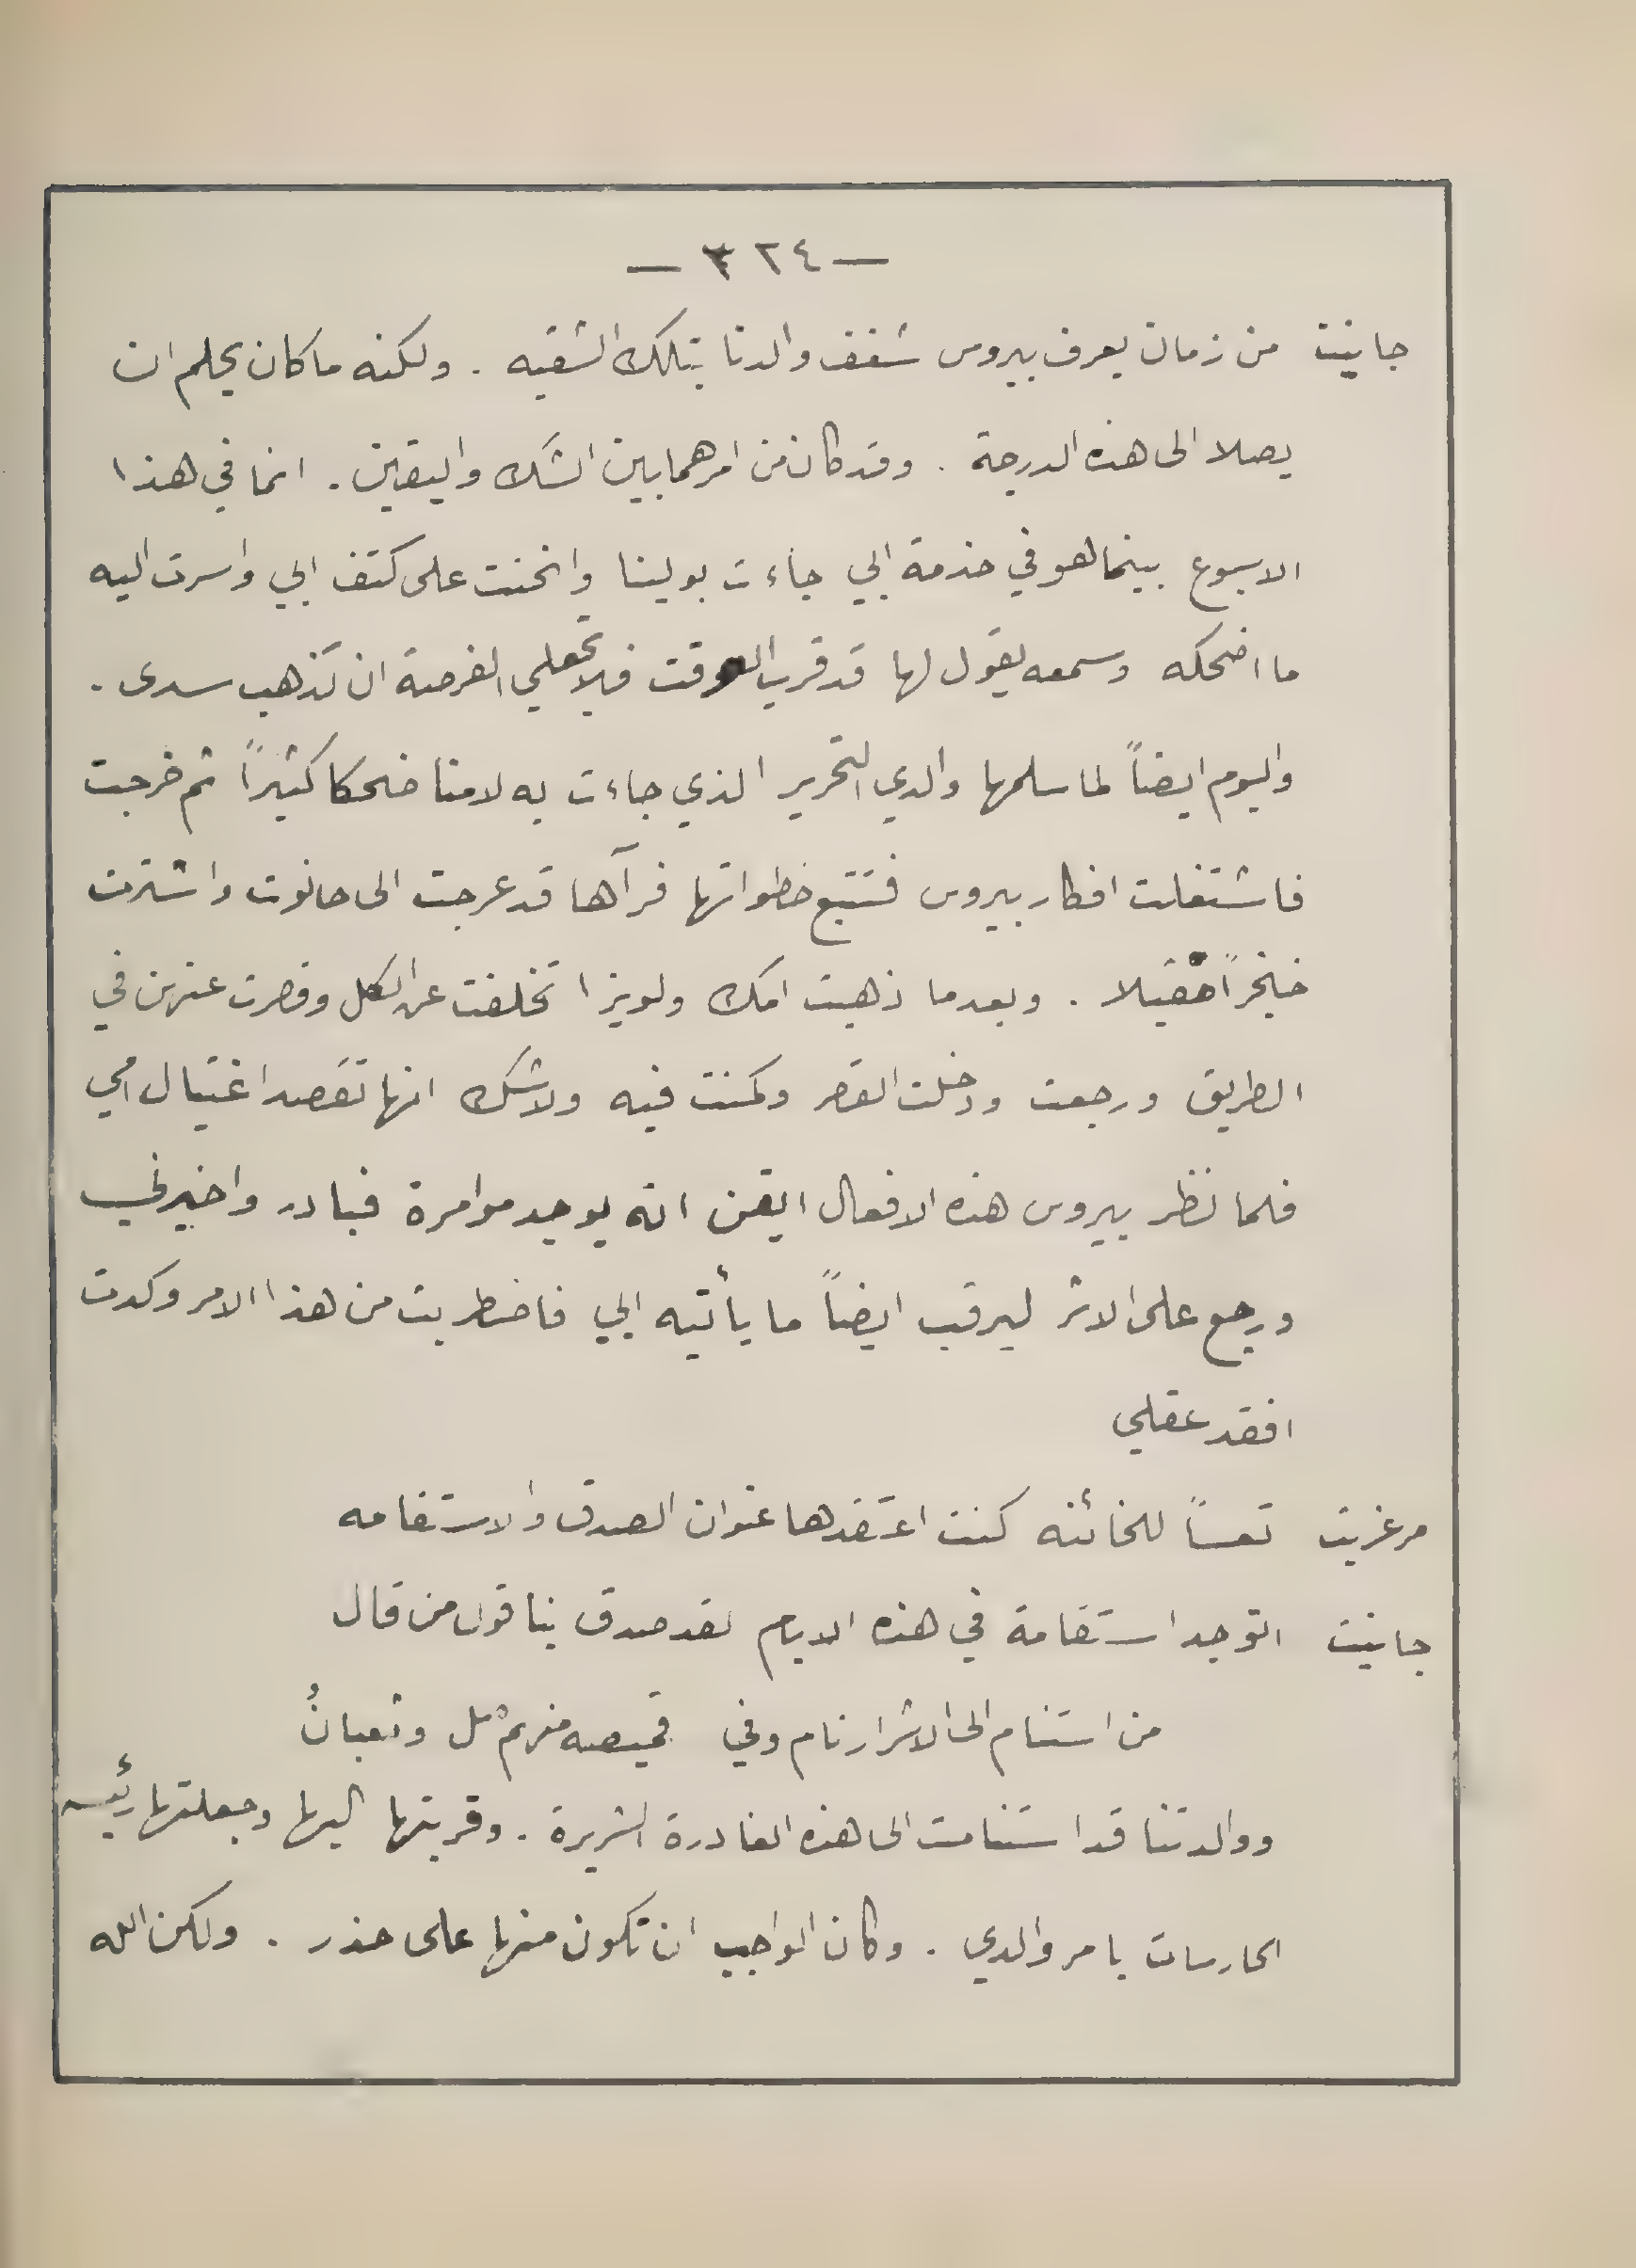 — ٣٢٤ —
جانيت من زمان يعرف بيروس شغف والدنا بتلك الشقيه . ولكنه ما كان يحلم ان
يصلا الى هذه الدرجة . وقد كان من امرهما بين الشك واليقين . انما في هذا
الاسبوع بينما هو في خدمة ابي جاءت بولينا وانحنت على كتف ابي واسرت اليه
ما اضحكه وسمعه يقول لها قد قرب الوقت فلا تجعلي الفرصة ان تذهب سدى .
واليوم ايضاً لما سلمها والدي التحرير الذي جاءت به لامنا ضحكا كثيراً ثم خرجت
فاشتغلت افكار بيروس فتتبع خطواتها فرآها قد عرجت الى حانوت واشترت
خنجراً ثقيلا . وبعدما ذهبت امك ولويزا تخلفت عن الكل وقصرت عنهن في
الطريق ورجعت ودخلت القصر وكمنت فيه ولا شك انها تقصد اغتيال امي
فلما نظر بيروس هذه الافعال ايقن انه يوجد موامرة فبادر واخبرني
ورجع على الاثر ليرقب ايضاً ما يأتيه ابي فاضطربت من هذا الامر وكدت
افقد عقلي
مرغريت تعساً للخائنه كنت اعتقدها عنوان الصدق والاستقامه
جانيت اتوجد استقامة في هذه الايام لقد صدق بنا قول من قال
من استنام الى الاشرار نام وفي قميصه منهم صل وثعبانُ
ووالدتنا قد استنامت الى هذه الغادرة الشريرة . وقربتها اليها وجعلتها رئيسه
الحارسات بامر والدي . وكان الواجب ان تكون منها على حذر . ولكن الله